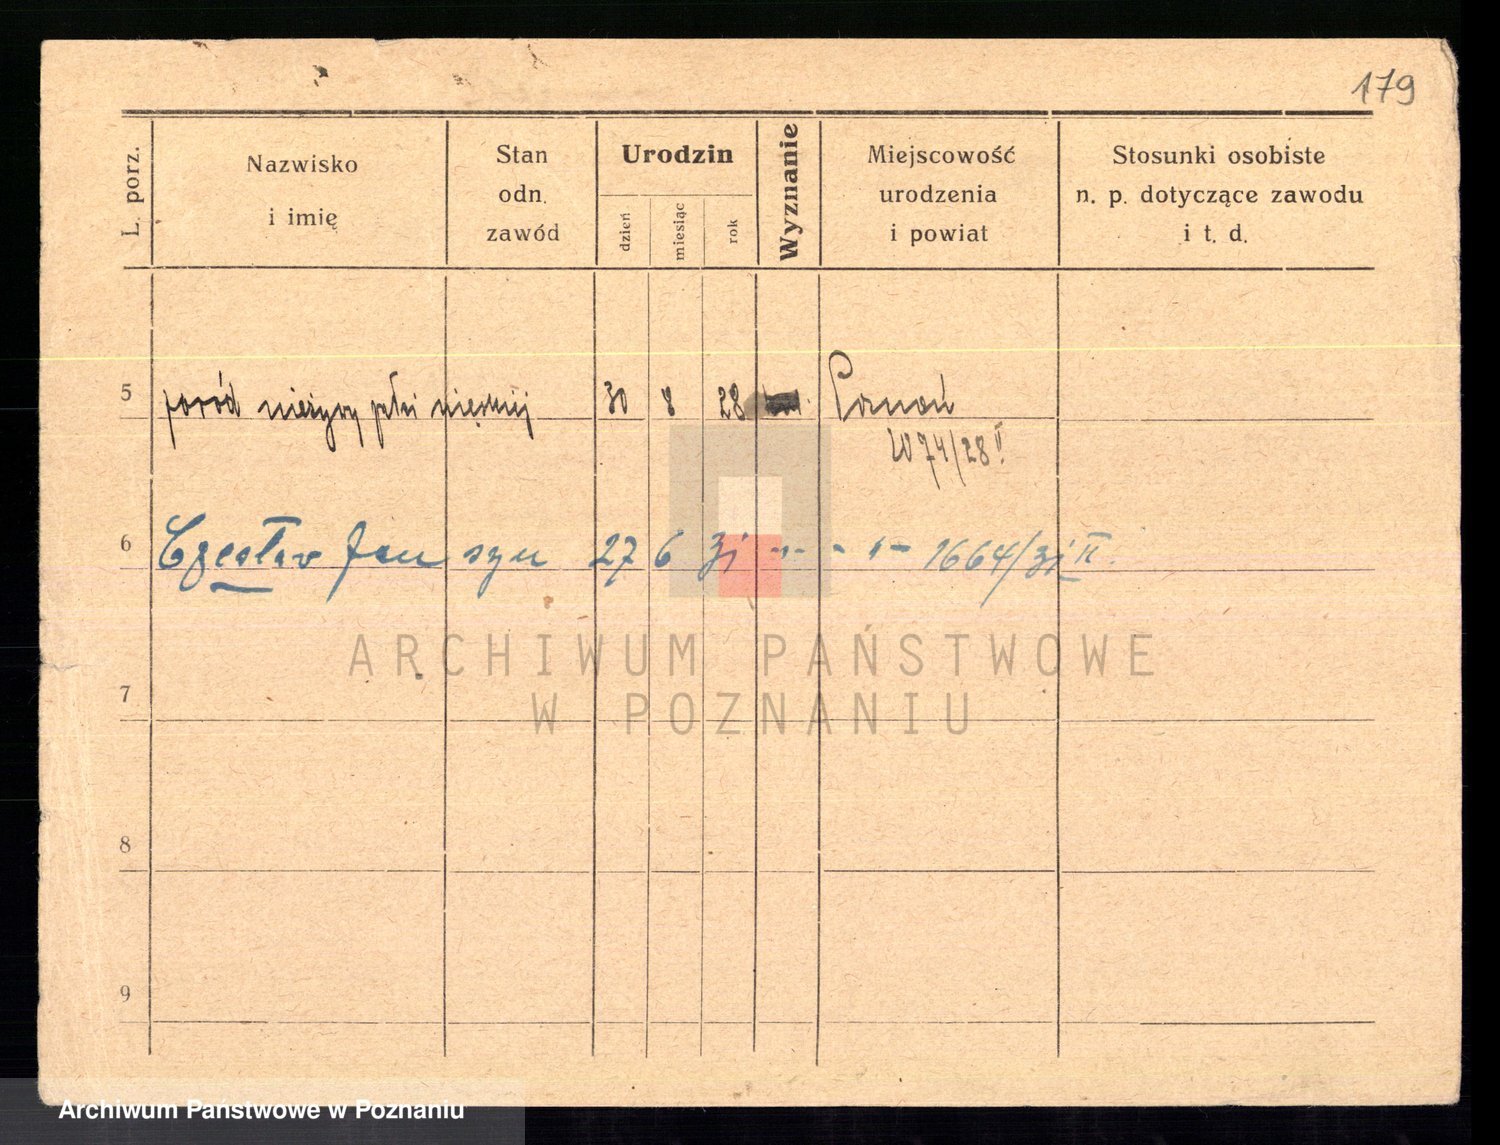 179
L. porz.
Nazwisko
i imię
Stan
odn.
zawód
Urodzin
dzień
miesiąc
rok
Wyznanie
Miejscowość
urodzenia
i powiat
Stosunki osobiste
n. p. dotyczące zawodu
i t. d.
5 poród nieżywy płci męskiej 30 8 28 Poznań
W 74/28 II
6 Czesław Jan syn 27 6 31 -„- -„- 1664/31 II
7
8
9
ARCHIWUM PAŃSTWOWE
W POZNANIU
Archiwum Państwowe w Poznaniu